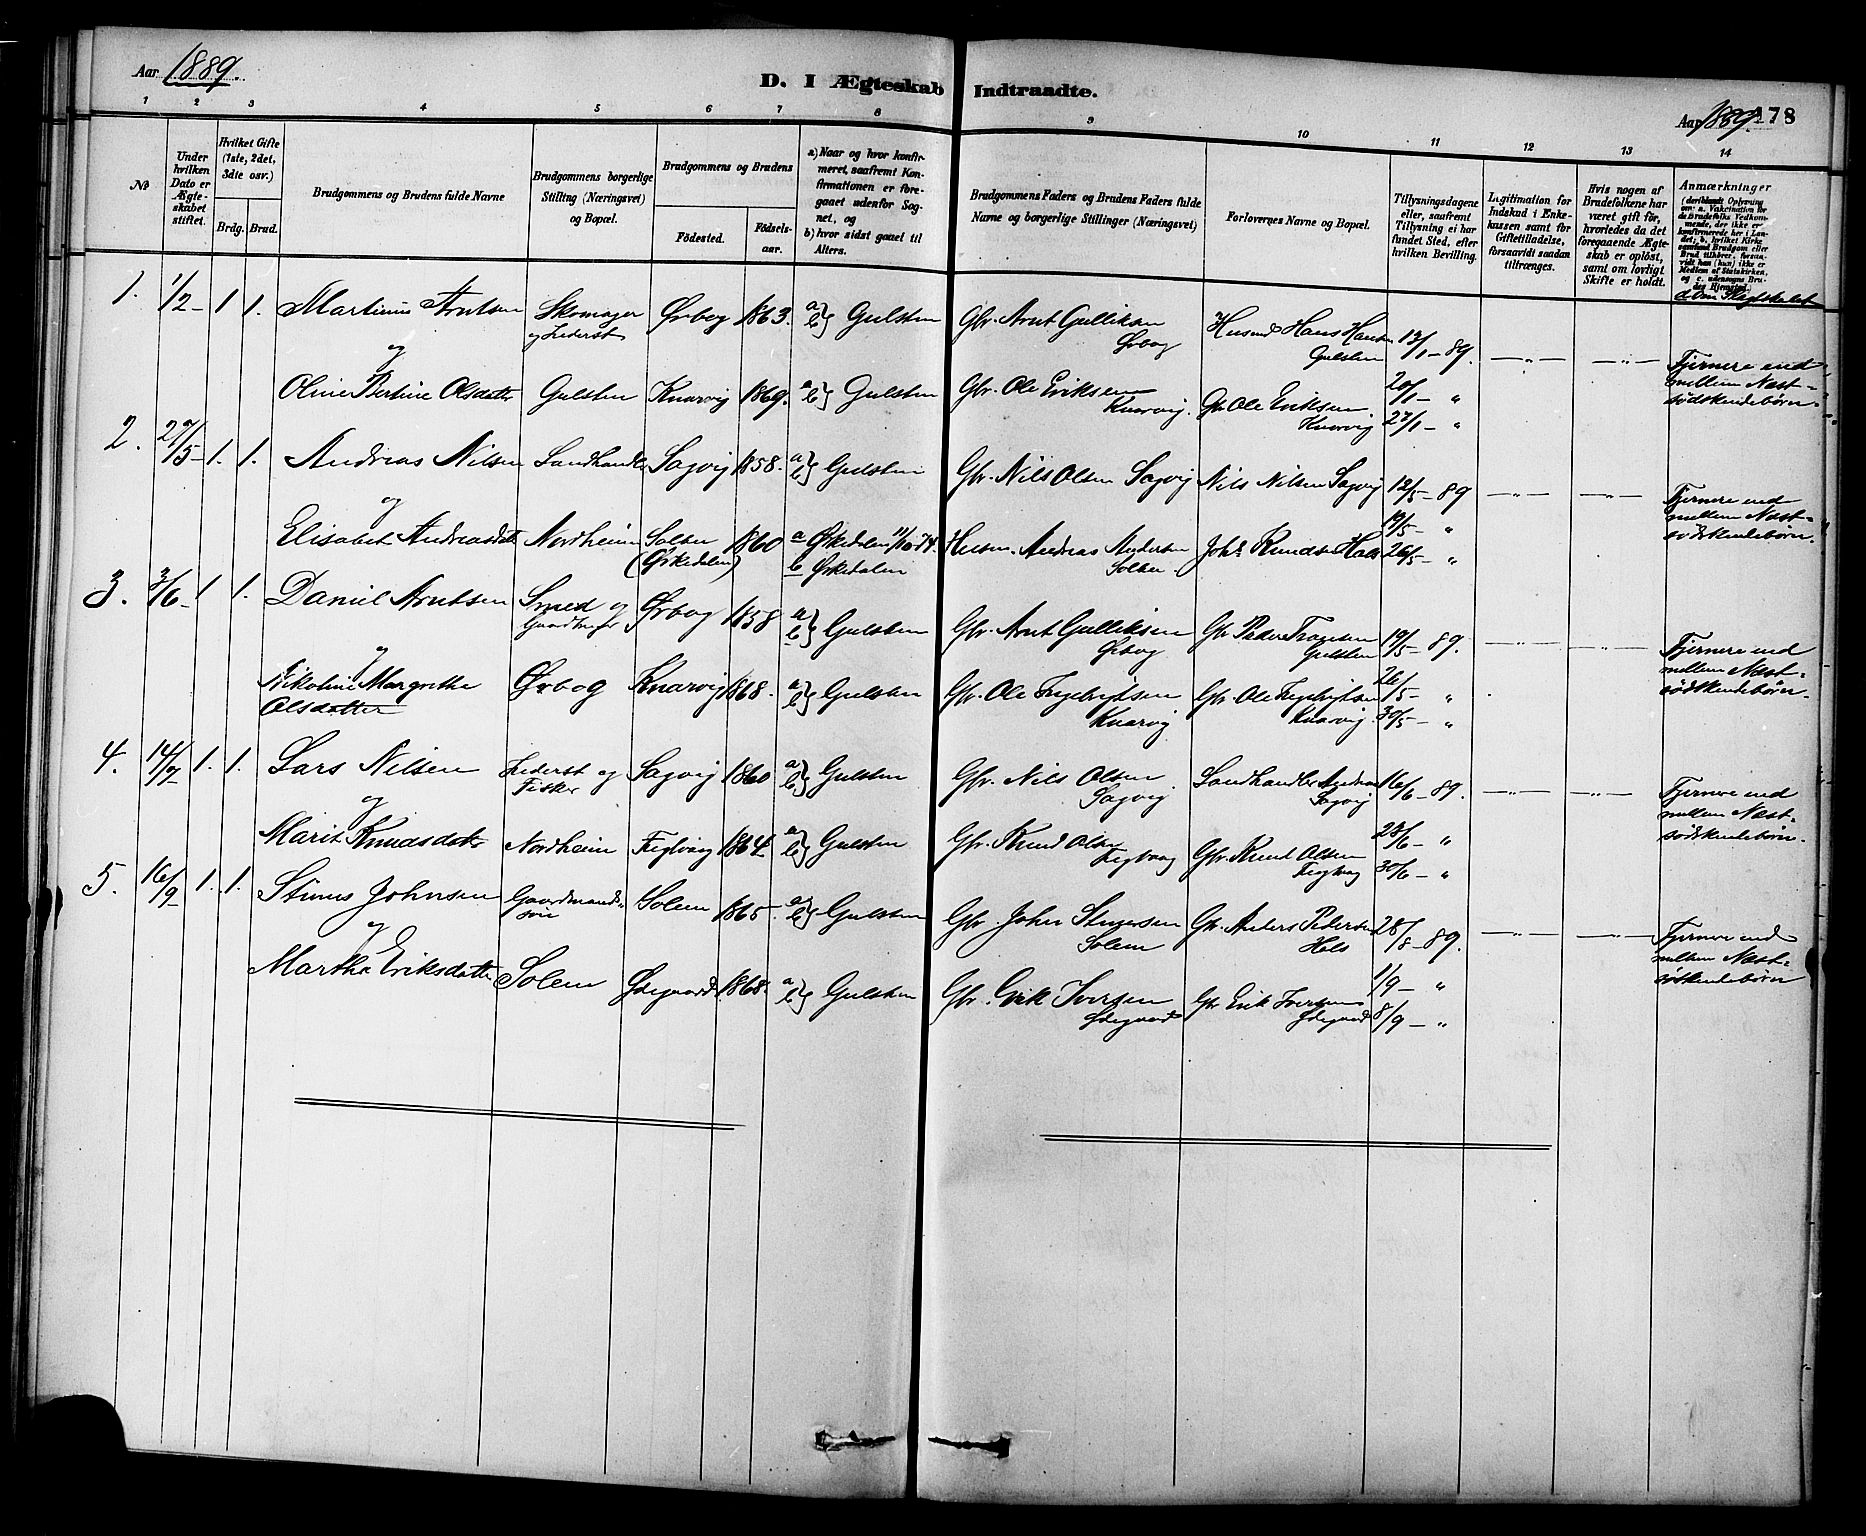 Aar 1889.
D. I Ægteskab Indtraadte.
Aar 1889. 178
1 2 3 4 5 6 7 8 9 10 11 12 13 14
No
Under hvilken Dato er Ægteskabet stiftet.
Hvilket Gifte (1ste, 2det, 3dte osv.)
Brdg. Brud.
Brudgommens og Brudens fulde Navne
Brudgommens borgerlige Stilling (Næringsvei) og Bopæl.
Brudgommens og Brudens
Fødested.
Fødselsaar.
a) Naar og hvor konfirmeret, saafremt Konfirmationen er foregaaet udenfor Sognet, og
b) hvor sidst gaaet til Alters.
Brudgommens Faders og Brudens Faders fulde Navne og borgerlige Stillinger (Næringsvei)
Forlovernes Navne og Bopæl.
Tillysningsdagene eller, saafremt Tillysning ei har fundet Sted, efter hvilken Bevilling.
Legitimation for Indskud i Enkekassen samt for Giftetilladelse, forsaavidt saadan tiltrænges.
Hvis nogen af Brudefolkene har været gift før, hvorledes da det foregaaende Ægteskab er opløst, samt om lovligt Skifte er holdt.
Anmærkninger
1. 1/2 1 1. Martinus Arntsen Skomager Ørbog 1863. a b} Gulsten Gbr. Arnt Gulliksen Husmd Hans Hansen 13/1 - 89. -"- -"- Fjernere end
og og Lederst Ørbog Gulsten mellem Næst-
Oline Bertine Olsdatter Gulsten Knarvig 1869. a b} Gulsten Gbr. Ole Eriksen Gbr Ole Eriksen 20/1 - " sødskendebørn.
Knarvig. Knarvig 27/1 - "
2. 27/5 - 1. 1. Andreas Nilsen Landhandler Sagvig 1858. a b} Gulsten Gbr. Nils Olsen Sagvig Nils Nilsen Sagvig 12/5 - 89 -"- -"- Fjernere end
og 19/5 - " mellem Næst-
Elisabet Andreasdatter Nordheim 1860 a Ørkedalen Husm. Andreas Andersen Knudsen 26/5 - " sødskendebørn.
(Ørkedalen) b Ørkedalen
3. 3/6 - 1 1. Daniel Arntsen Smed og Ørbog 1858 a b} Gulsten Gbr. Arnt Gulliksen Gbr Peder 19/5 - 89. -"- -"- Fjernere end
og Ørbog Gulsten mellem Næst-
Nikoline Margrethe Ørbog Knarvig 1868. a b} Gulsten Gbr. Ole Ingebrigtsen Gbr. Ole Ingebrigtsen 26/5 - " sødskendebørn.
Olsdatter Knarvig Knarvig. 30/5 - "
4. 14/7 1. 1. Lars Nilsen Lederst og Sagvig 1860 a b} Gulsten Gbr. Nils Olsen Landhandler Andreas 16/6 - 89. -"- -"- Fjernere end
og Fisker Sagvig Sagvig mellem Næst-
Marit Knudsdatter Nordheim 1864 a b} Gulsten Gbr. Knud Olsen Gbr. Knud Olsen 23/6 - " sødskendebørn.
30/6 - "
5. 16/9 1. 1. Johnsen Gaardmands- Solem 1865. a b} Gulsten Gbr. John Gbr. Anders Pedersen 25/8 - 89. -"- -"- Fjernere end
og søn Solem Hals mellem Næst-
Martha Eriksdatter Solem Ødegaard 1868. a b} Gulsten Gbr. Erik Iversen Gbr Erik Iversen 1/9 - " sødskendebørn
Ødegaard Ødegaard 8/9 - "